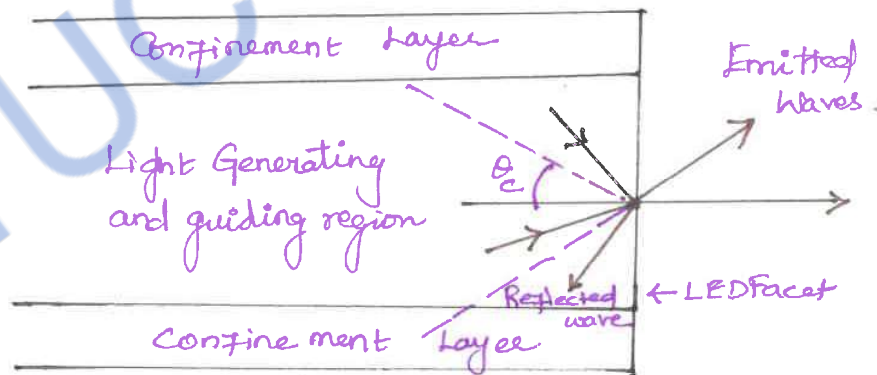 Confinement Layer
Emitted
Waves.
Light Generating
and guiding region
θc
Reflected
wave
← LED Facet
Confine ment Layer
UC